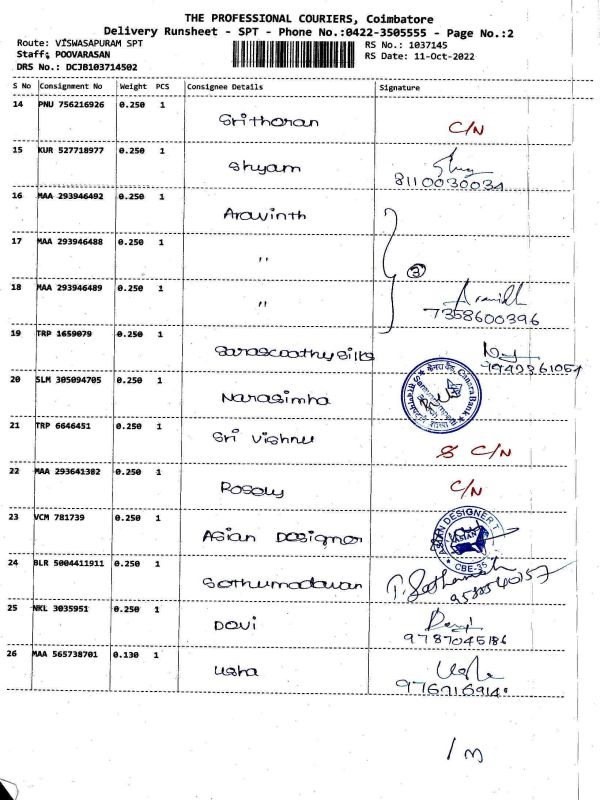 THE PROFESSIONAL COURIERS, Coimbatore
Delivery Runsheet - SPT - Phone No.:0422-3505555 - Page No.:2
Route: VISWASAPURAM SPT RS No.: 1037145
Staff: POOVARASAN RS Date: 11-Oct-2022
DRS No.: DCJB103714502
S No Consignment No Weight PCS Consignee Details Signature
14 PNU 756216926 0.250 1 Sritharan C/N
15 KUR 527718977 0.250 1 Shyam
8110030034
16 MAA 293946492 0.250 1 Aravinth
17 MAA 293946488 0.250 1 "
3
18 MAA 293946489 0.250 1 " Aravidh
7358600396
19 TRP 1659079 0.250 1 Saraswathy silks
9942361054
20 SLM 305094705 0.250 1 Narasimha Canara Bank
21 TRP 6646451 0.250 1 Sri Vishnu C/N
22 MAA 293641382 0.250 1 Rosely C/N
23 VCM 781739 0.250 1 Asian Designer ASIAN DESIGNER T ASIAN CBE-35
24 BLR 5004411911 0.250 1 Sathumadavan
25 NKL 3035951 0.250 1 Devi
9787045186
26 MAA 565738701 0.130 1 usha Usha
9976716914